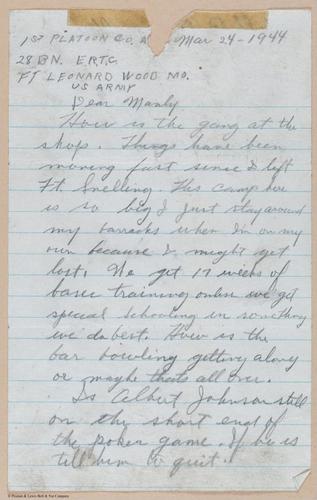 1ST PLATOON CO. A Mar 24-1944
28 BN. ERTC
FT LEONARD WOOD MO.
US ARMY
Dear Manly
How is the gang at the
shop. Things have been
moving fast since I left
Ft. Snelling. This camp here
is so big I just stay around
my barracks when I'm on my
own because I might get
lost. We get 17 weeks of
basic training unless we get
special schooling in something
we do best. How is the
bar bowling getting along
or maybe thats all over.
Is Albert Johnson still
on the short end of
the poker game. If he is
tell him to quit.